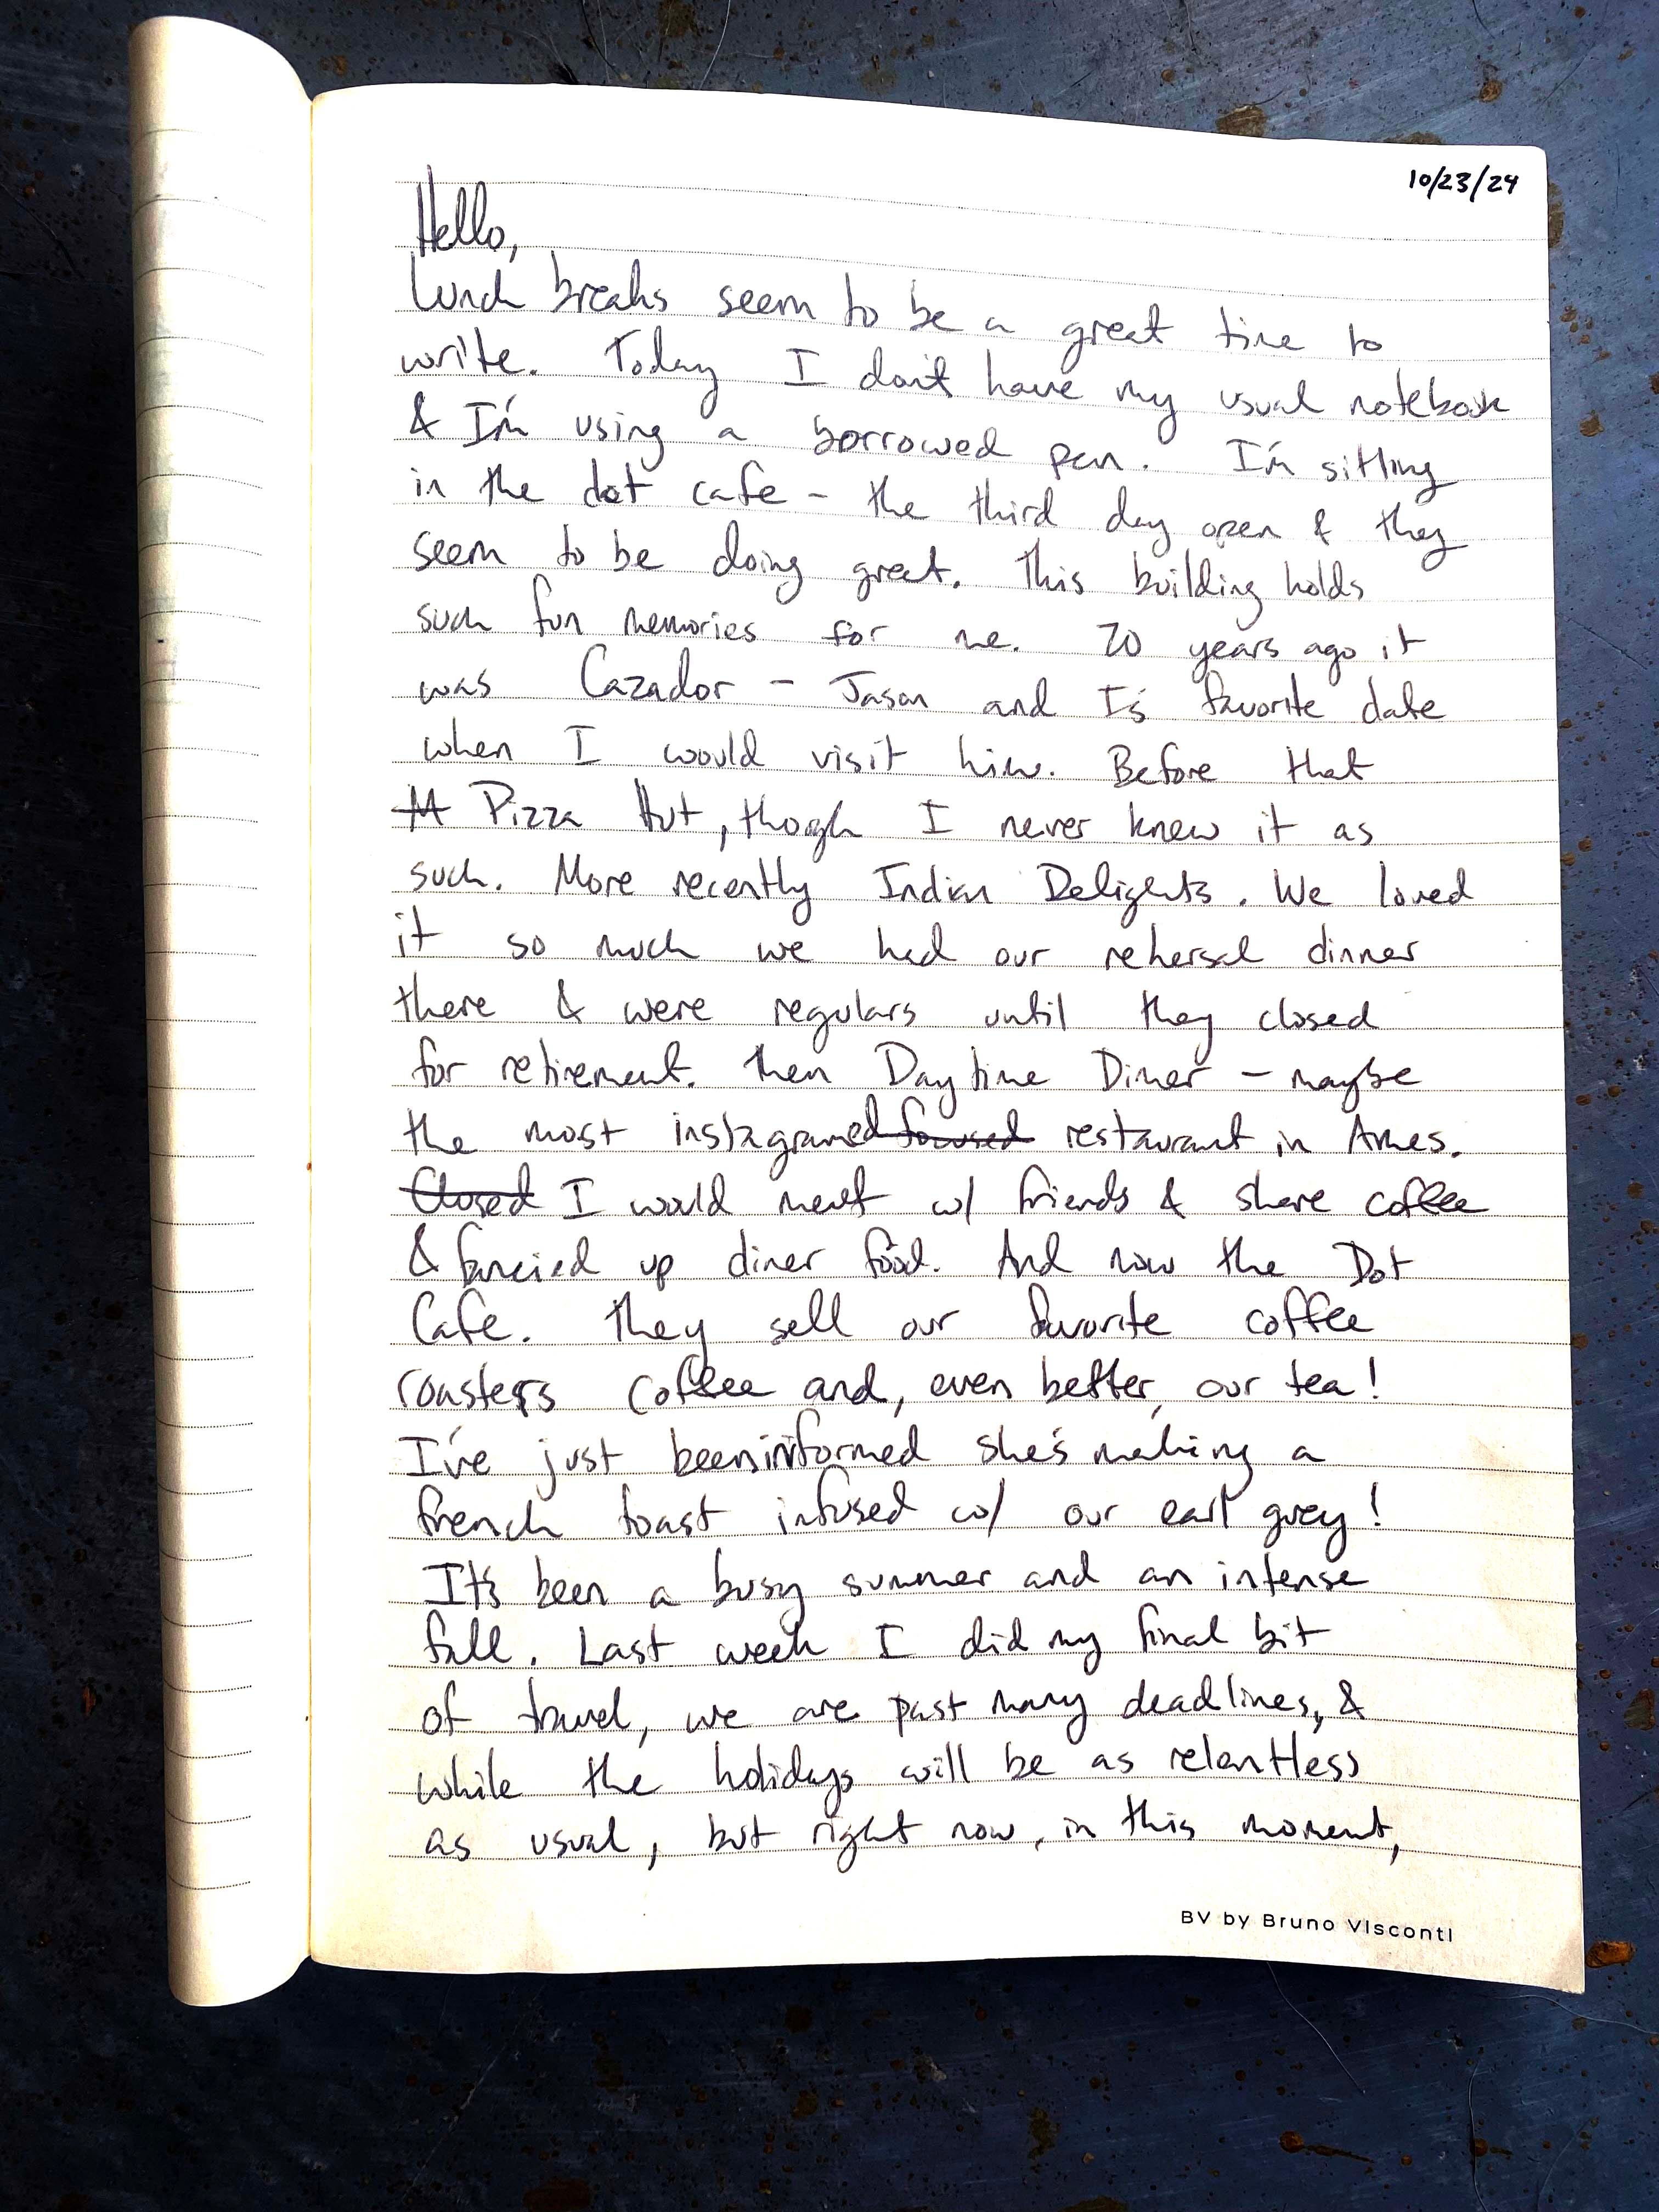 10/23/24
Hello,
Lunch breaks seem to be a great time to
write. Today I don't have my usual notebook
& I'm using a borrowed pen. I'm sitting
in the dot cafe - the third day open & they
seem to be doing great. This building holds
such fun memories for me. 20 years ago it
was Cazador - Jason and I's favorite date
when I would visit him. Before that
Pizza Hut, though I never knew it as
such. More recently Indian Delights. We loved
it so much we had our rehersal dinner
there & were regulars until they closed
for retirement. Then Daytime Diner - maybe
the most instagramed focused restaurant in Ames.
Closed I would meet w/ friends & share coffee
& fancied up diner food. And now the Dot
Cafe. They sell our favorite coffee
roasters coffee and, even better, our tea!
I've just been informed she's making a
french toast infused w/ our earl grey!
It's been a busy summer and an intense
fall. Last week I did my final bit
of travel, we are past many deadlines, &
while the holidays will be as relentless
as usual, but right now, in this moment,
BV by Bruno Visconti